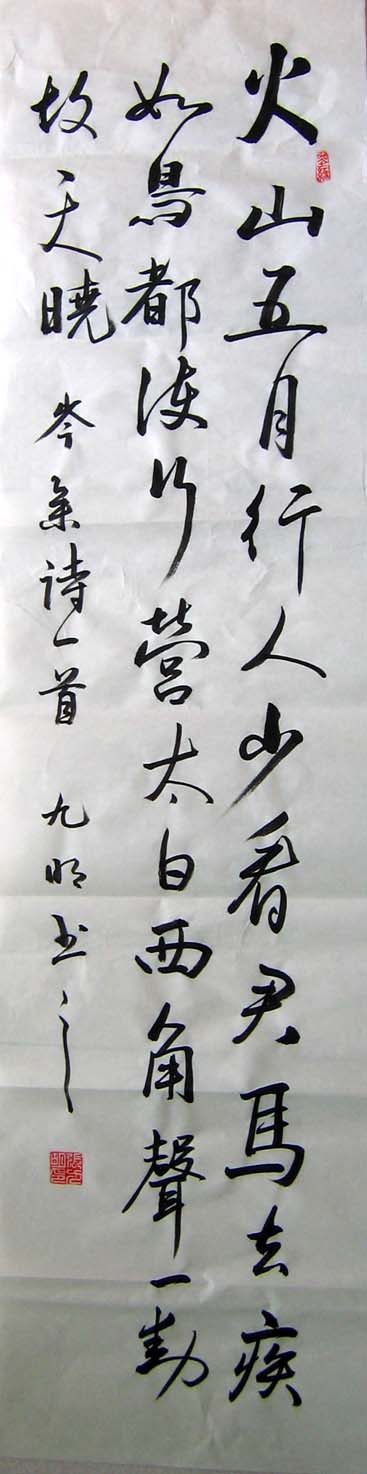 火山五月行人少看君馬去疾
如鳥都護行營太白西角聲一動
胡天曉 岑參诗一首 九明书之